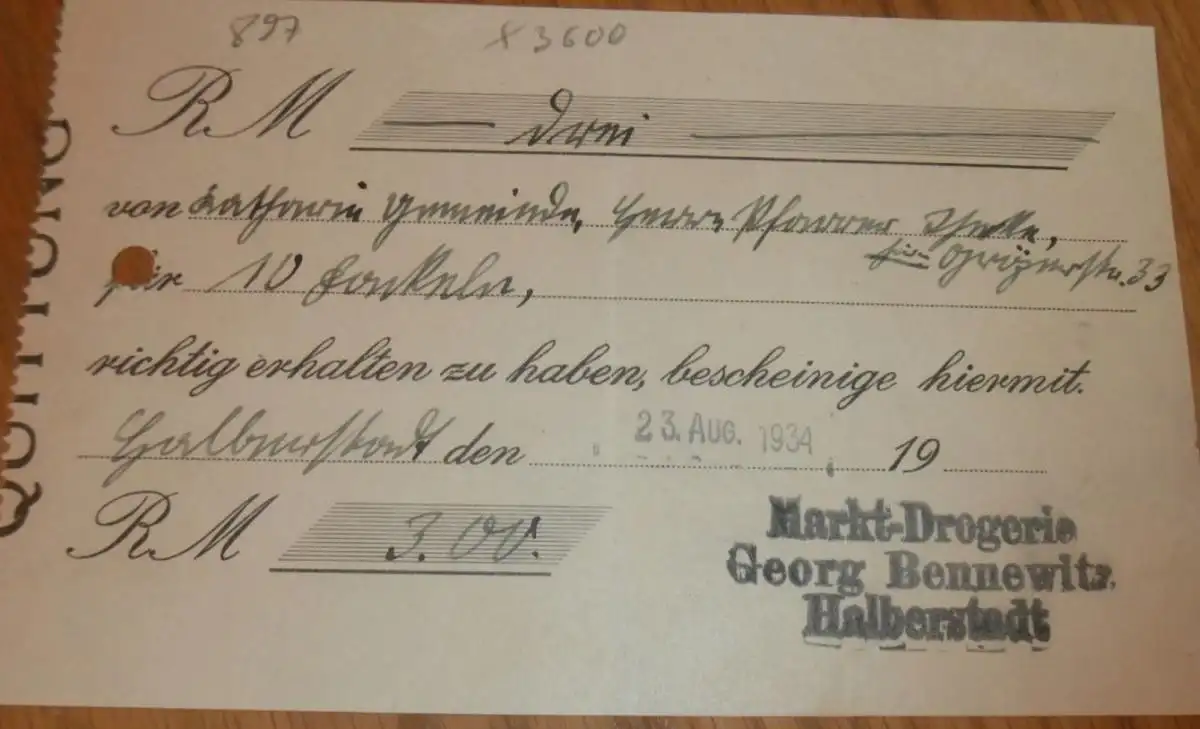 897 x 3600
QUITTUNG
RM Drei
von Katharin Gemeinde, Herrn Pfarrer
für 10 Fackeln, 33
richtig erhalten zu haben, bescheinige hiermit.
Halberstadt den 23. AUG. 1934 19
RM 3.00.
Markt-Drogerie
Georg Bennewitz
Halberstadt